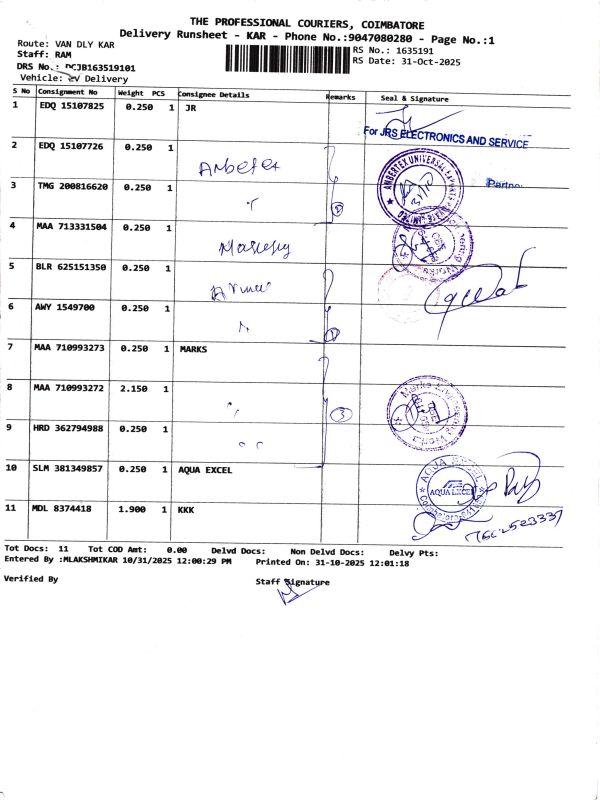 THE PROFESSIONAL COURIERS, COIMBATORE
Delivery Runsheet - KAR - Phone No.:9047080280 - Page No.:1
Route: VAN DLY KAR
Staff: RAM
DRS No.: DCJB163519101
Vehicle: EV Delivery
RS No.: 1635191
RS Date: 31-Oct-2025
S No Consignment No Weight PCS Consignee Details Remarks Seal & Signature
1 EDQ 15107825 0.250 1 JR
For JRS ELECTRONICS AND SERVICE
Partner
2 EDQ 15107726 0.250 1
3 TMG 200816620 0.250 1 " 2
AMBERTEX UNIVERSAL EXPORTS PRIVATE LIMITED
4 MAA 713331504 0.250 1
5 BLR 625151350 0.250 1
6 AWY 1549700 0.250 1 "
7 MAA 710993273 0.250 1 MARKS
8 MAA 710993272 2.150 1 " 3
9 HRD 362794988 0.250 1 "
10 SLM 381349857 0.250 1 AQUA EXCEL
AQUA EXCEL
AQUA EXCEL
11 MDL 8374418 1.900 1 KKK
Tot Docs: 11 Tot COD Amt: 0.00 Delvd Docs: Non Delvd Docs: Delvy Pts:
Entered By :MLAKSHMIKAR 10/31/2025 12:00:29 PM Printed On: 31-10-2025 12:01:18
Verified By Staff Signature